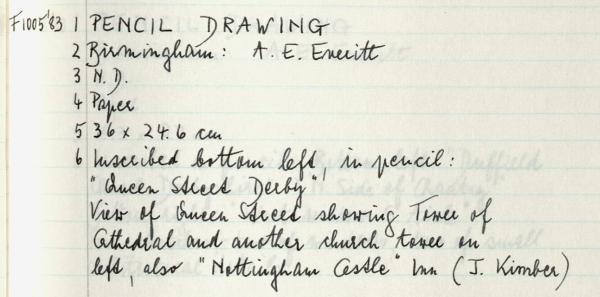 F1005'83 1 PENCIL DRAWING
2 Birmingham: A. E. Everitt
3 N.D.
4 Paper
5 36 x 24.6 cm
6 Inscribed bottom left, in pencil:
"Queen Street Derby",
View of Queen Street showing Tower of
Cathedral and another church tower on
left, also "Nottingham Castle" Inn (J. Kimber)